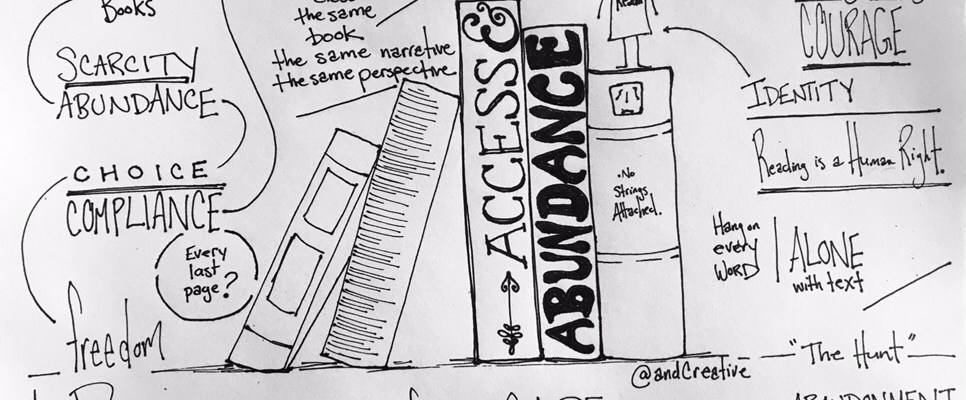 Books
SCARCITY
ABUNDANCE
CHOICE
COMPLIANCE
Every
last
page?
freedom
the same
book
the same narrative
the same perspective
ACCESS &
ABUNDANCE
No
Strings
Attached.
@andCreative
COURAGE
IDENTITY
Reading is a Human Right.
Hang on
every
WORD
ALONE
with text
"The Hunt"
ABANDONMENT